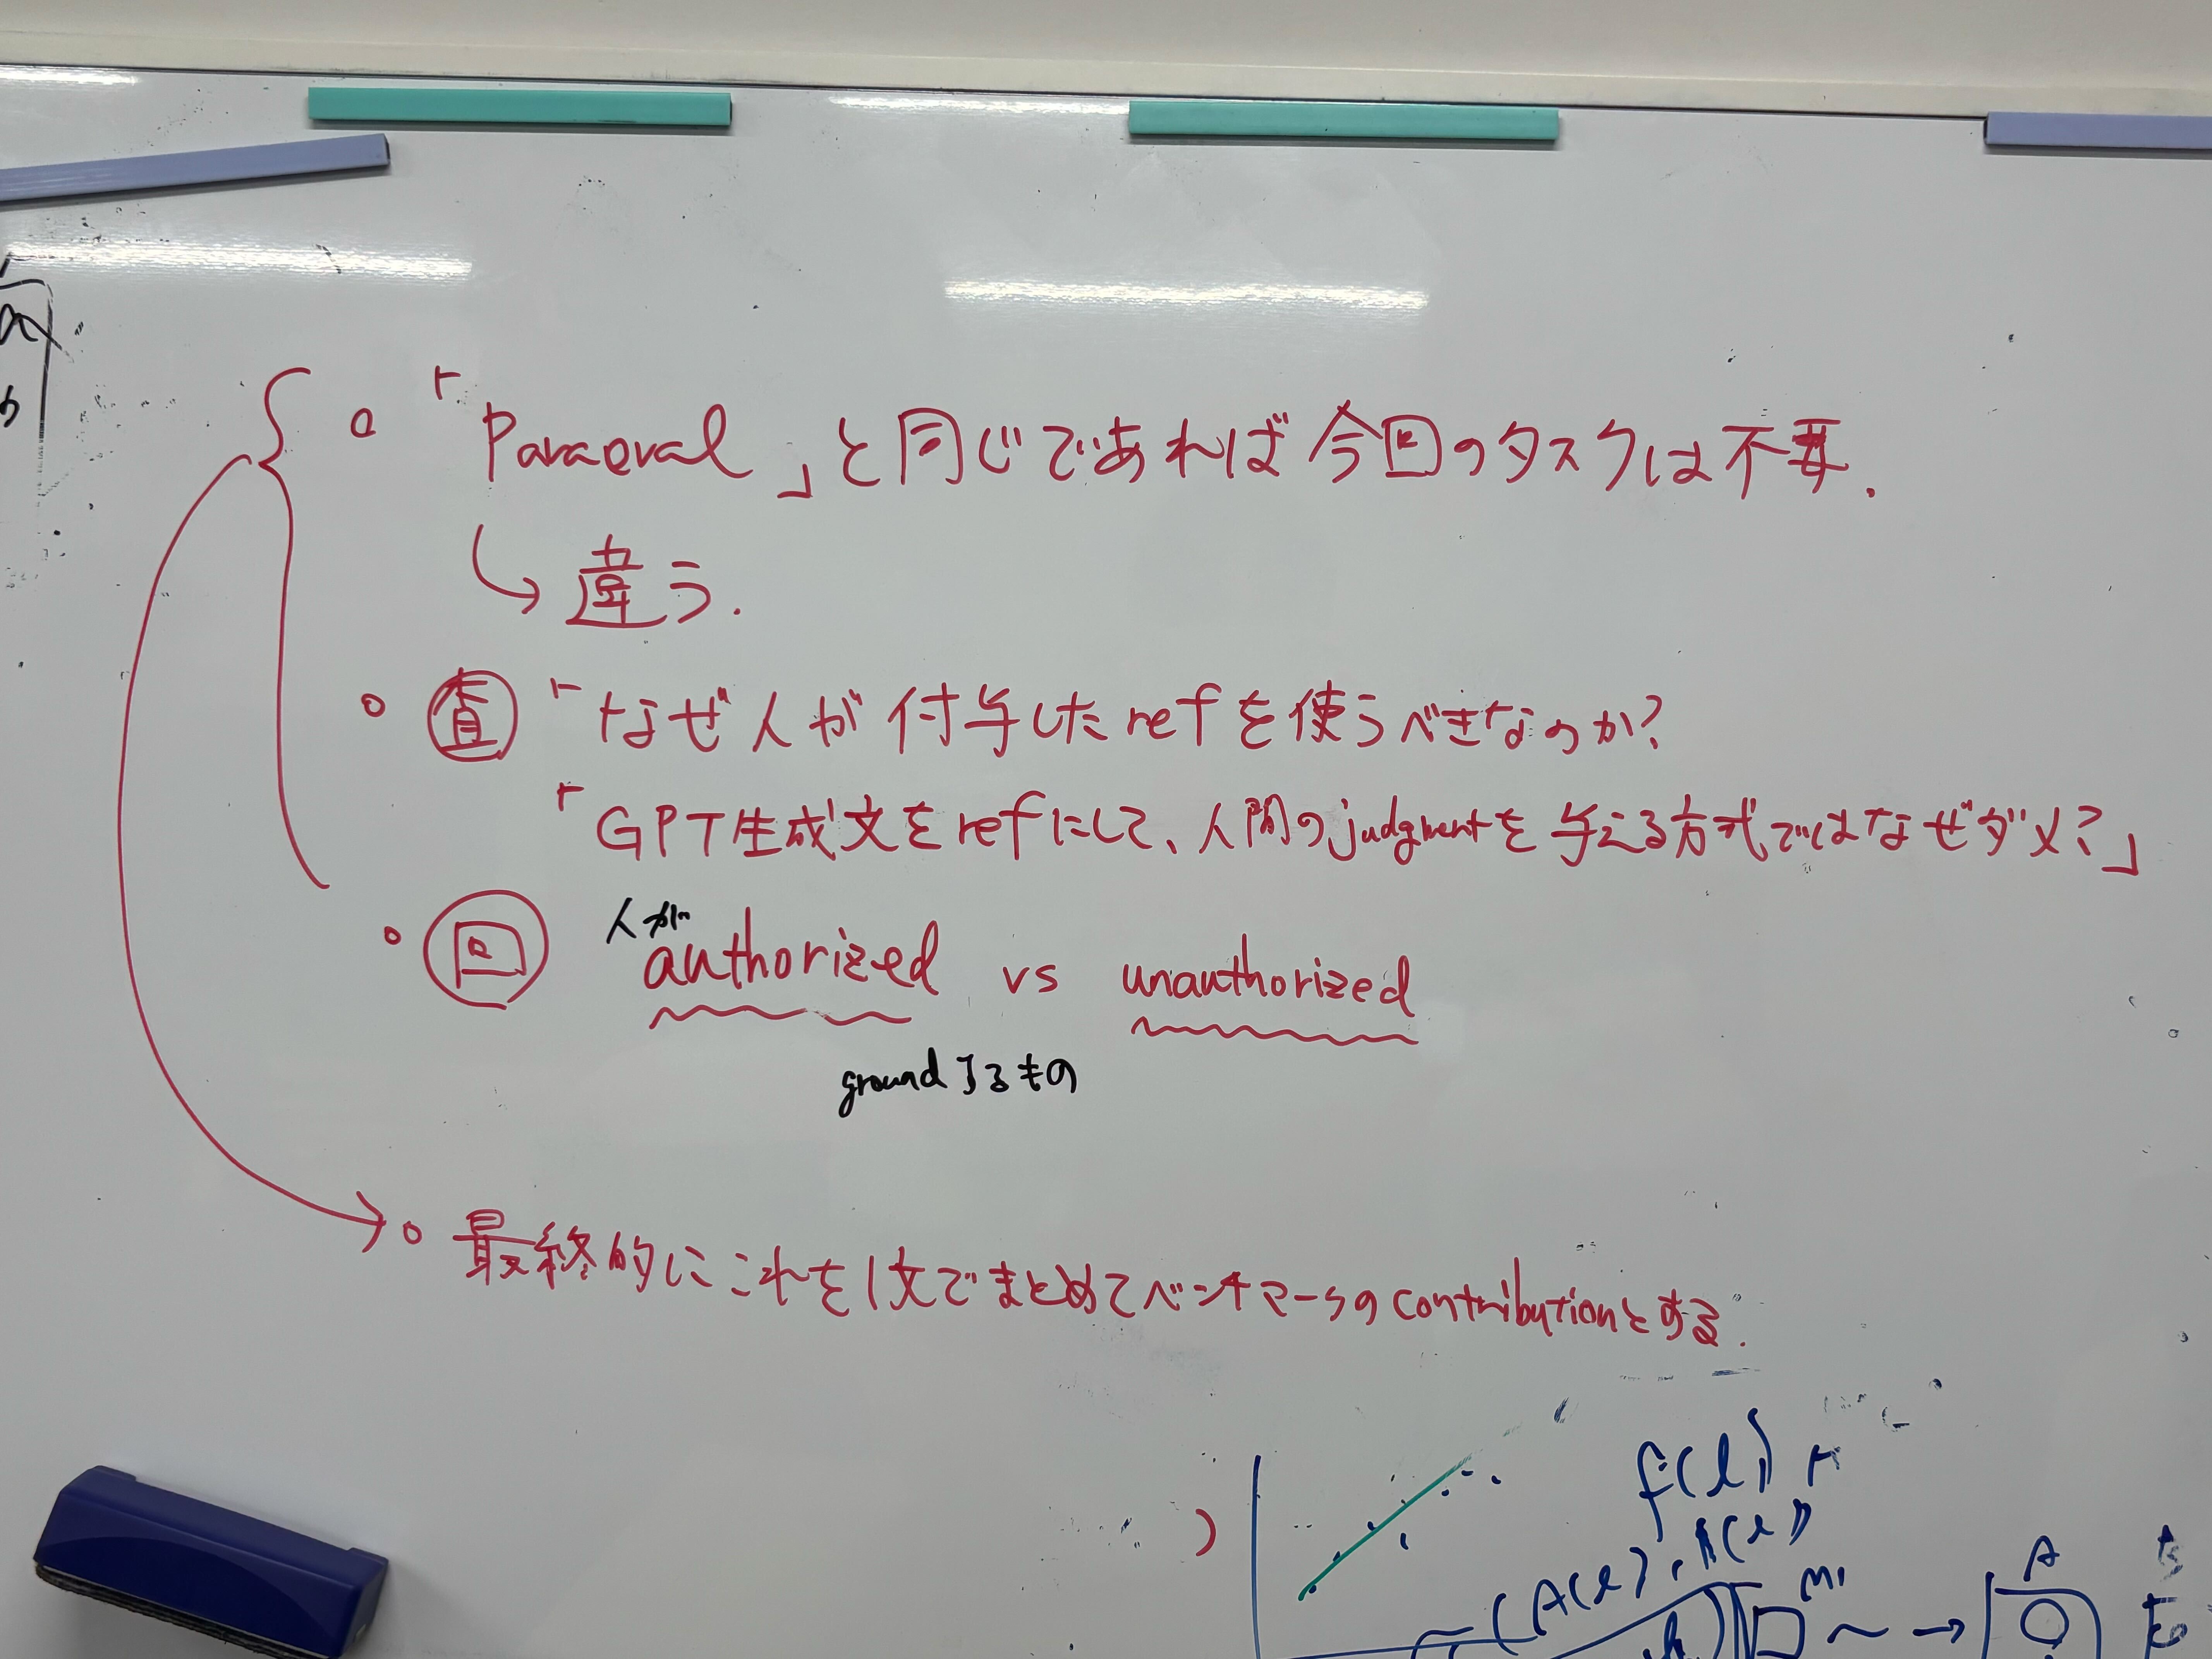 「Paraeval」と同じであれば今回のタスクは不要.
↳ 違う.
査 「なぜ人が付与したrefを使うべきなのか?
「GPT生成文をrefにして、人間のjudgmentを与える方式ではなぜダメ?」
人が
回 authorized vs unauthorized
groundするもの
最終的にこれを1文でまとめてベンチマークのcontributionとする.
f(l)
(A(l),
M1
A